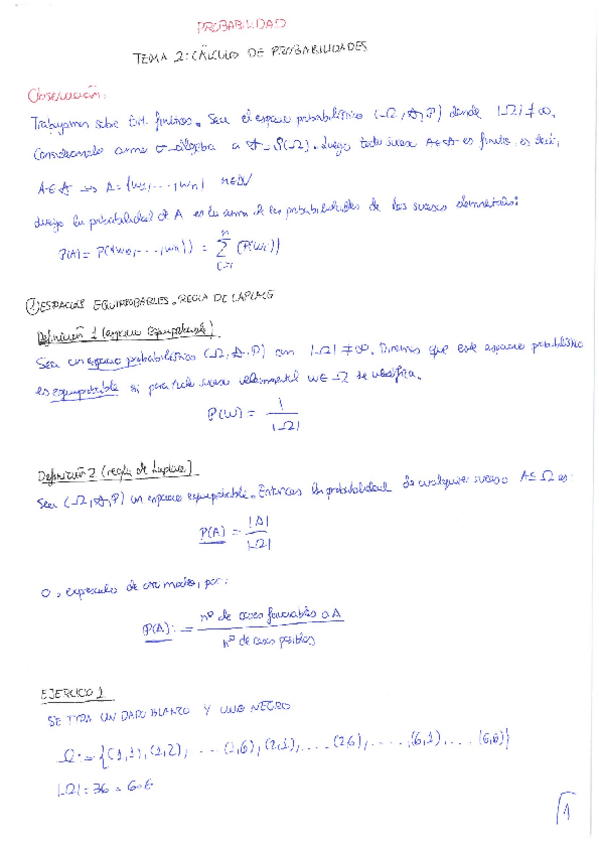 PROBABILIDAD
TEMA 2: CÁLCULO DE PROBABILIDADES
Observación:
Trabajamos sobre Ω finitos. Sea el espacio probabilístico (Ω, A, P) donde |Ω| ≠ ∞.
Considerando como σ-álgebra a A = P(Ω). Luego todo suceso A∈A es finito, es decir,
A∈A => A = {w₁, ..., wₙ} n∈N
luego la probabilidad de A es la suma de las probabilidades de los sucesos elementales:
P(A) = P({w₁, ..., wₙ}) = Σ (P(wᵢ))
n
i=1
① ESPACIOS EQUIPROBABLES. REGLA DE LAPLACE
Definición 1 (espacio equiprobable)
Sea un espacio probabilístico (Ω, A, P) con |Ω| ≠ ∞. Diremos que este espacio probabilístico
es equiprobable si para todo suceso elemental w∈Ω se verifica.
P(w) = 1 / |Ω|
Definición 2 (regla de Laplace)
Sea (Ω, A, P) un espacio equiprobable. Entonces la probabilidad de cualquier suceso A⊆Ω es:
P(A) = |A| / |Ω|
O, expresado de otro modo, por:
P(A) := nº de casos favorables a A / nº de casos posibles
EJERCICIO 1
SE TIRA UN DADO BLANCO Y UNO NEGRO
Ω := {(1,1), (1,2), ... (1,6), (2,1), ... (2,6), ..., (6,1), ... (6,6)}
|Ω| = 36 = 6·6
1